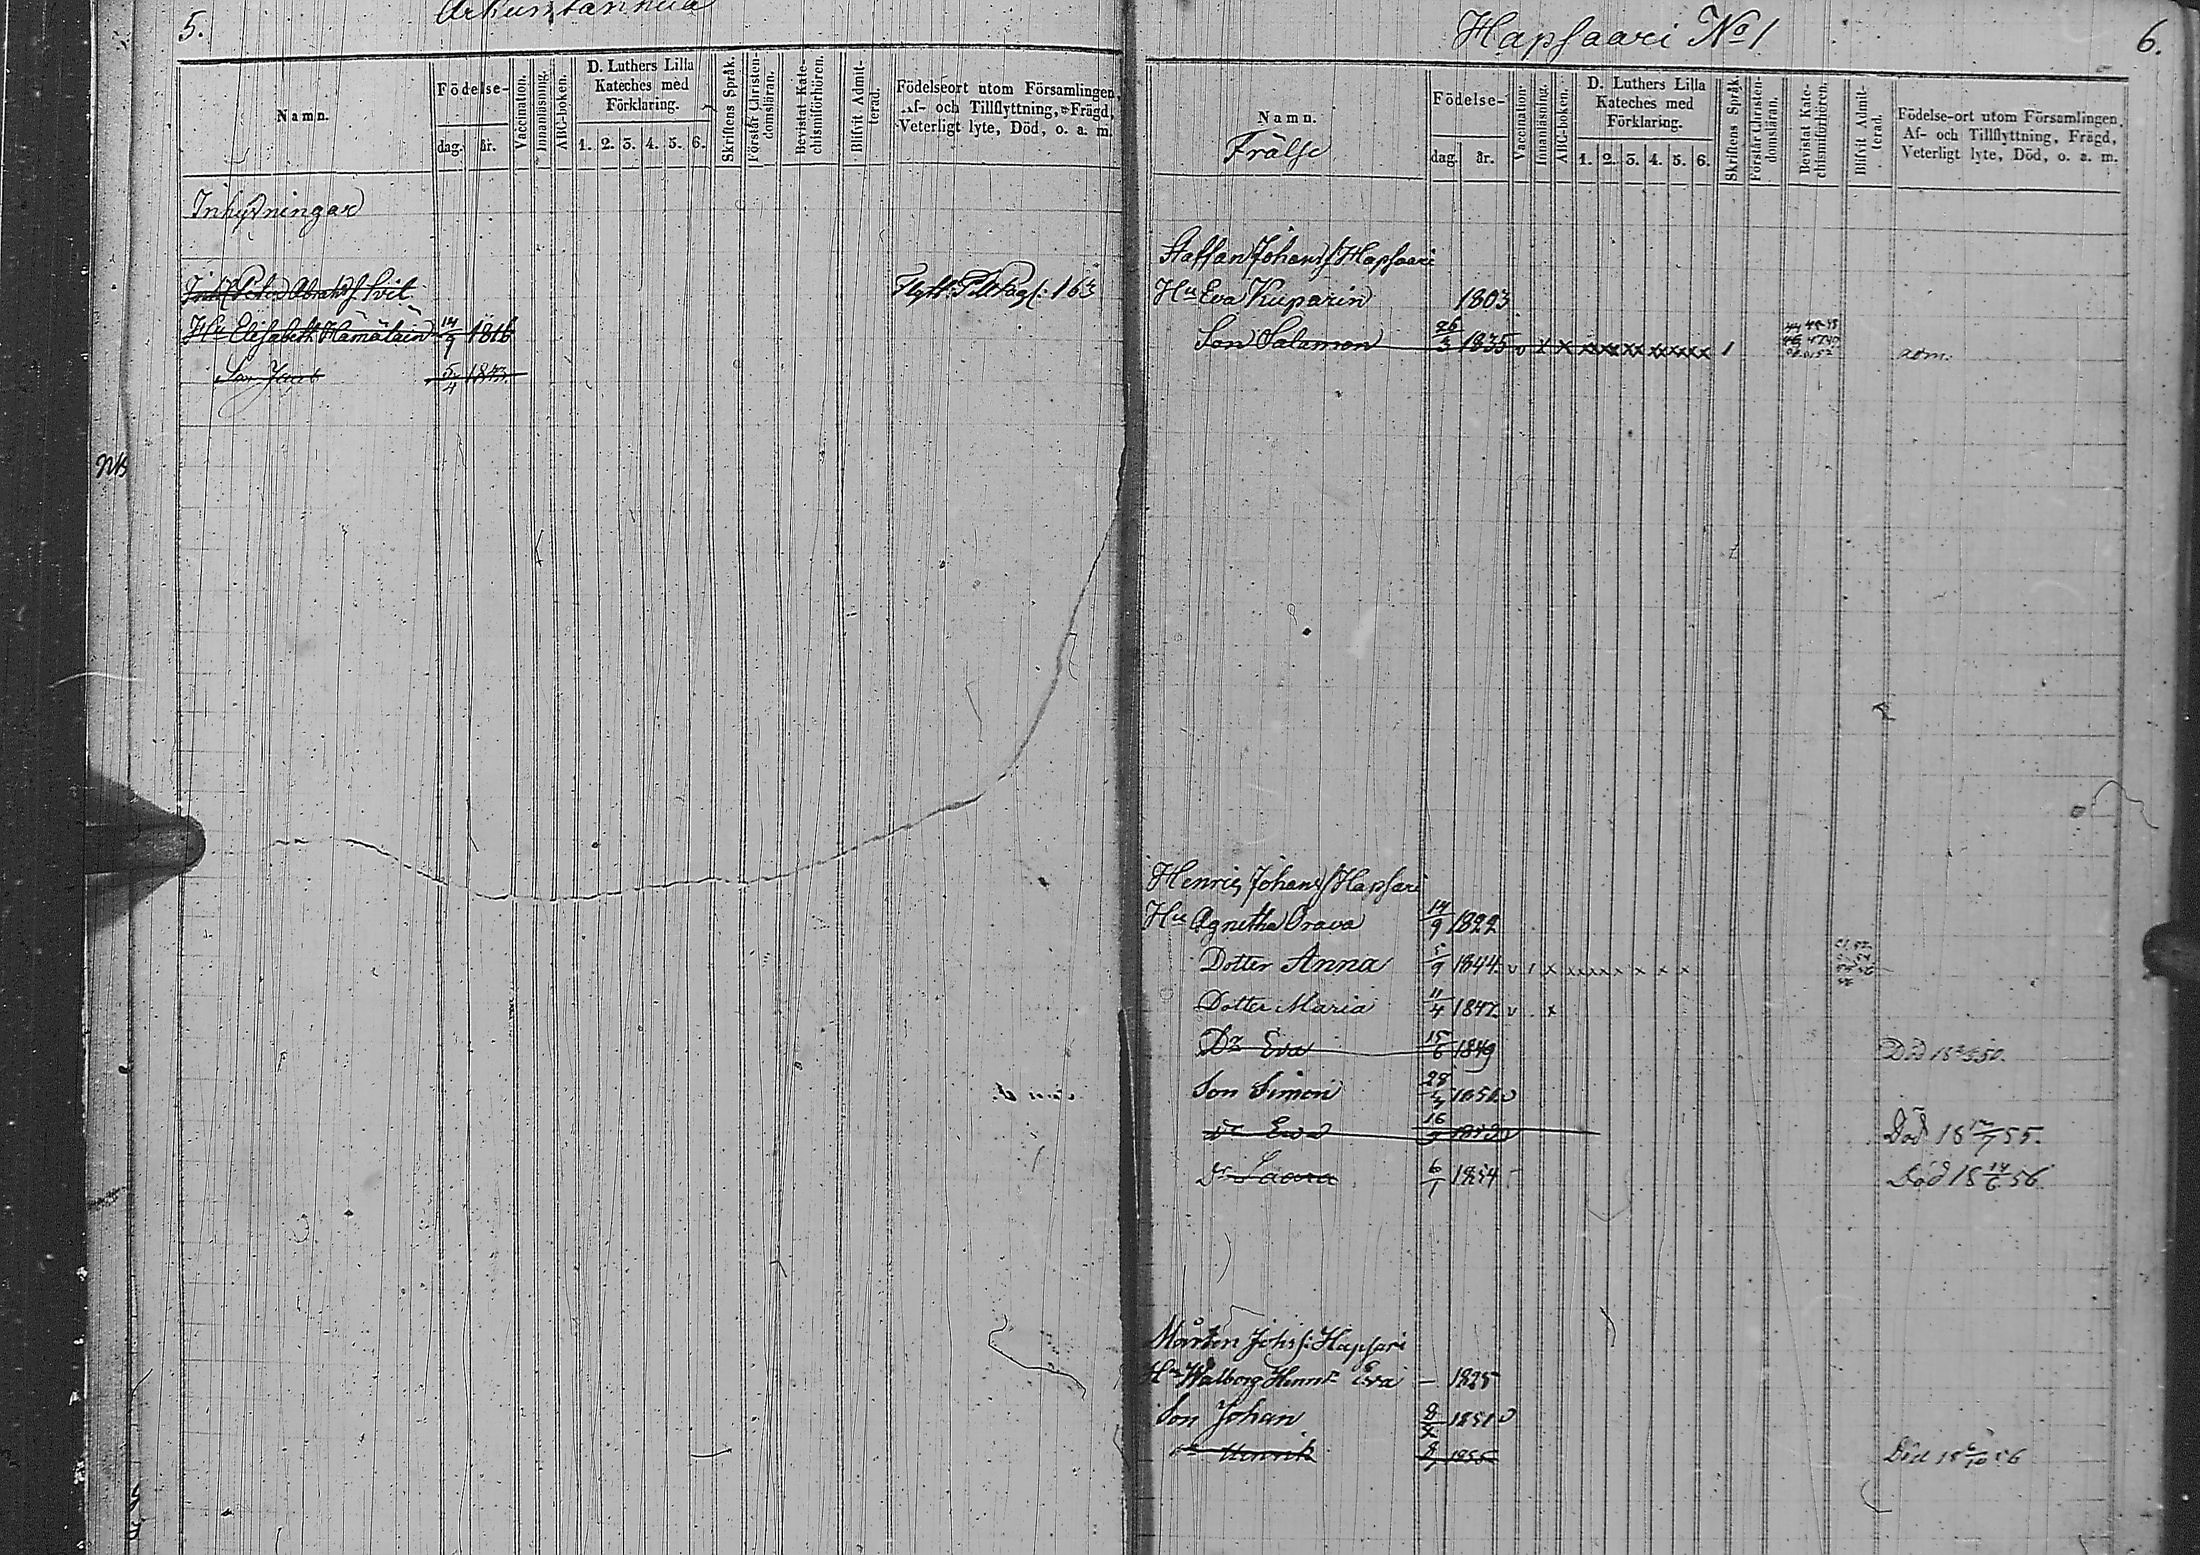 5.
Namn.
Födelse-
dag. år.
Vaccination.
Innanläsning.
ABC-boken.
D. Luthers Lilla
Kateches med
Förklaring.
1. 2. 3. 4. 5. 6.
Skriftens Språk.
Förstår Christen-
domsläran.
Bevistat Kate-
chismiförhören.
Blifvit Admit-
terad.
Födelseort utom Församlingen,
Af- och Tillflyttning, Frägd,
Veterligt lyte, Död, o. a. m.
Inhysningar
Peter Abrah
Flytt: Till Pag: 163
Hu Elisabeth Hämäläin 14/9 1816
Son Jacob 5/4
NB
Hapsaari No 1
6.
Namn.
Frälse
Födelse-
dag. år.
Vaccination.
Innanläsning.
ABC-boken.
D. Luthers Lilla
Kateches med
Förklaring.
1. 2. 3. 4. 5. 6.
Skriftens Språk.
Förstår Christen-
domsläran.
Bevistat Kate-
chismiförhören.
Blifvit Admit-
terad.
Födelse-ort utom Församlingen,
Af- och Tillflyttning, Frägd,
Veterligt lyte, Död, o. a. m.
Staffan Johans Hapsaari
Hu Eva Kuparin 1803
Son Salamon 26/3 1835 v 1 x x x x x x x 1 adm.
Henric Johans Hapsari
Hu Agnetha Orava 14/9 1822
Dotter Anna 5/9 1844 v 1 x x x x x x x x
Dotter Maria 11/4 1847 v x
Dr Eva 15/6 1849 Död
Son Simon 28
Dr Eva 16 Död 18 55.
Dr Laura 6/1 1854 Död 18 14/6 56
Mårten Johs: Hapsari
Hu Walborg Hinr Eva – 1825
Son Johan 8 1851 v
Dr Henrik 8 1855 Död 56